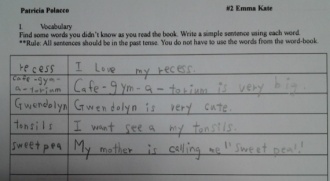 Patricia Polacco #2 Emma Kate
I Vocabulary
Find some words you didn't know as you read the book. Write a simple sentence using each word.
**Rule: All sentences should be in the past tense. You do not have to use the words from the word-book.
recess I Love my recess.
cafe-gym-
a-torium Cafe-gym-a-torium is very big.
Gwendolyn Gwendolyn is very cute.
tonsils I want see a my tonsils.
sweet pea My mother is calling me "sweet pea!"